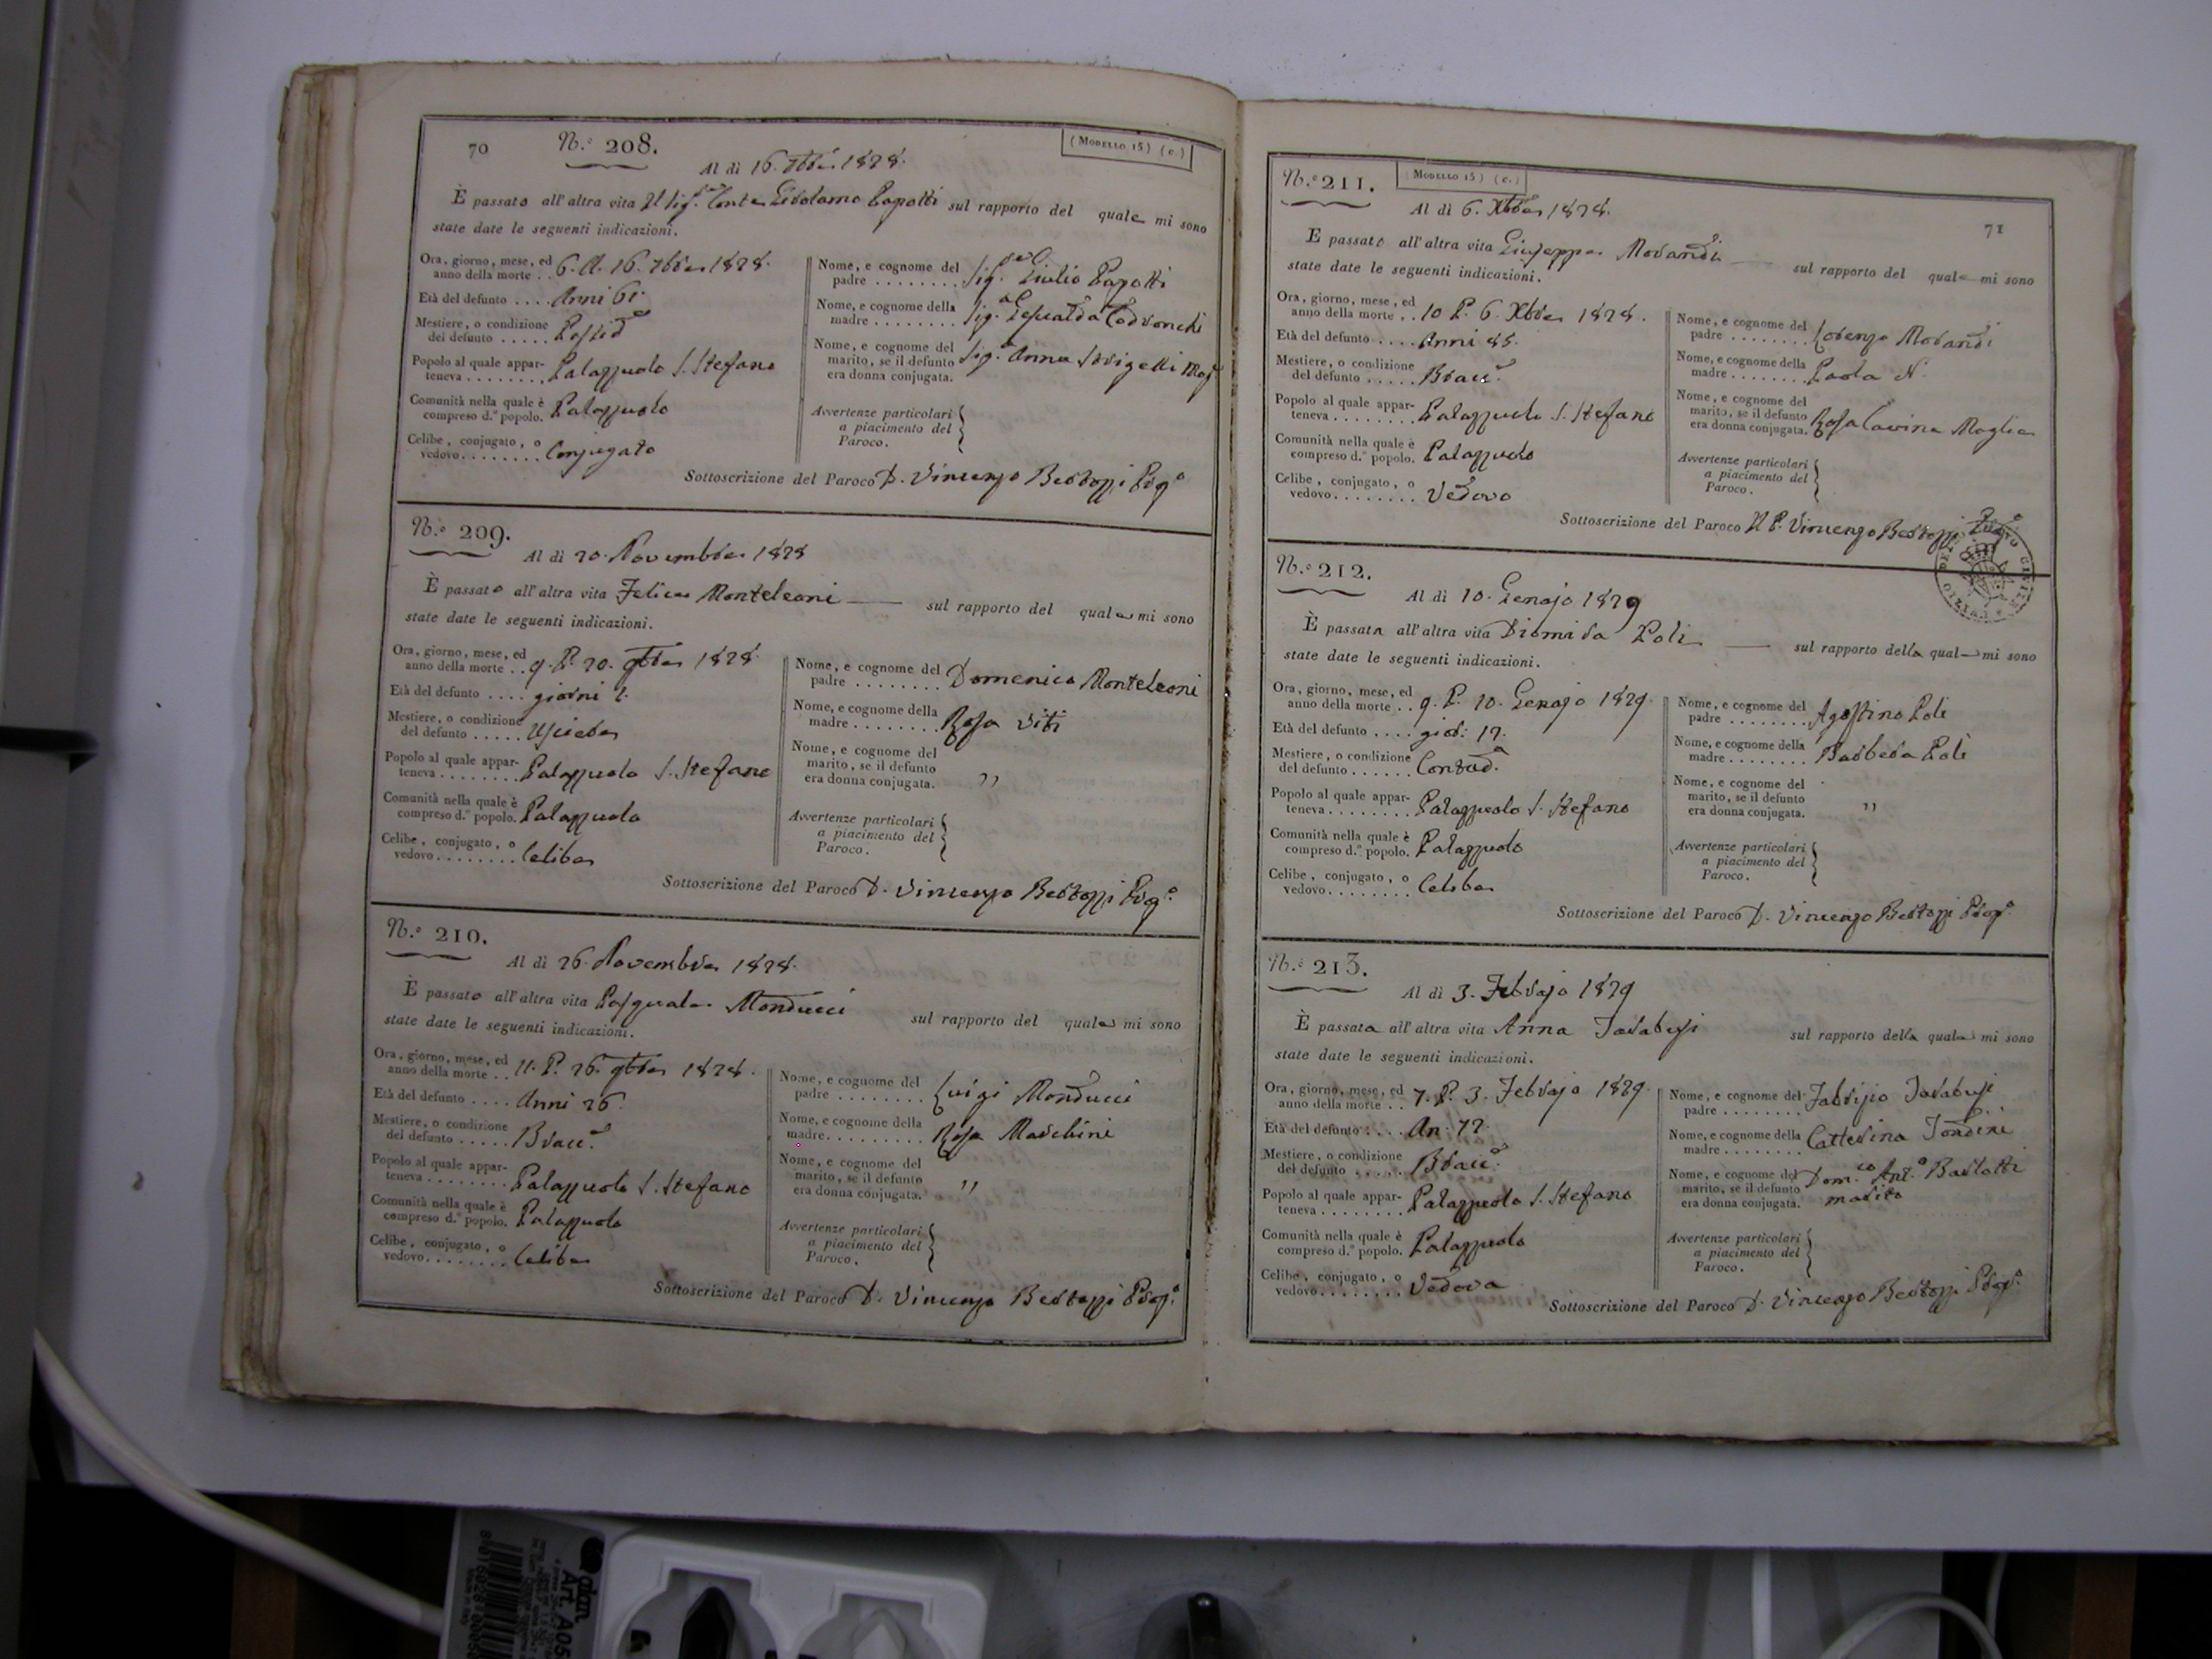 70
N.º 208.
(Modello 15) (c.)
Al dì 16. 7bre 1828.
È passato all'altra vita Il Sig.r Conte Girolamo Papotti sul rapporto del quale mi sono
state date le seguenti indicazioni.
Ora, giorno, mese, ed
anno della morte . . 6. A. 16. 7bre 1828.
Età del defunto . . . . Anni 61.
Mestiere, o condizione
del defunto . . . . . Possid.e
Popolo al quale appar-
teneva . . . . . . . . Palazzuolo S. Stefano
Comunità nella quale è
compreso d.º popolo. Palazzuolo
Celibe, conjugato, o
vedovo . . . . . . . . Conjugato
Nome, e cognome del
padre . . . . . . . . Sig.r Giulio Papotti
Nome, e cognome della
madre . . . . . . . . Sig.a Codronchi
Nome, e cognome del
marito, se il defunto
era donna conjugata. Sig.a Anna
Avvertenze particolari
a piacimento del
Paroco.
Sottoscrizione del Paroco D. Vincenzo Bertozzi
N.º 209.
Al dì 20. Novembre 1828
È passato all'altra vita Felice Monteleoni sul rapporto del quale mi sono
state date le seguenti indicazioni.
Ora, giorno, mese, ed
anno della morte . . 9. P. 20. 9bre 1828.
Età del defunto . . . . giorni
Mestiere, o condizione
del defunto . . . . .
Popolo al quale appar-
teneva . . . . . . . . Palazzuolo S. Stefano
Comunità nella quale è
compreso d.º popolo. Palazzuolo
Celibe, conjugato, o
vedovo . . . . . . . . Celibe
Nome, e cognome del
padre . . . . . . . . Domenico Monteleoni
Nome, e cognome della
madre . . . . . . . . Rosa Viti
Nome, e cognome del
marito, se il defunto
era donna conjugata. ,,
Avvertenze particolari
a piacimento del
Paroco.
Sottoscrizione del Paroco D. Vincenzo Bertozzi
N.º 210.
Al dì 26. Novembre 1828.
È passato all'altra vita Pasquale Monducci sul rapporto del quale mi sono
state date le seguenti indicazioni.
Ora, giorno, mese, ed
anno della morte . . 11. P. 26. 9bre 1828.
Età del defunto . . . . Anni 26.
Mestiere, o condizione
del defunto . . . . . Bracc.e
Popolo al quale appar-
teneva . . . . . . . . Palazzuolo S. Stefano
Comunità nella quale è
compreso d.º popolo. Palazzuolo
Celibe, conjugato, o
vedovo . . . . . . . . Celibe
Nome, e cognome del
padre . . . . . . . . Luigi Monducci
Nome, e cognome della
madre . . . . . . . . Rosa Marchini
Nome, e cognome del
marito, se il defunto
era donna conjugata. ,,
Avvertenze particolari
a piacimento del
Paroco.
Sottoscrizione del Paroco D. Vincenzo Bertozzi
N.º 211.
(Modello 15) (c.)
71
Al dì 6. Xbre 1828.
È passato all'altra vita Giuseppe Morandi sul rapporto del quale mi sono
state date le seguenti indicazioni.
Ora, giorno, mese, ed
anno della morte . . 10 P. 6. Xbre 1828.
Età del defunto . . . . Anni 85.
Mestiere, o condizione
del defunto . . . . . Bracc.e
Popolo al quale appar-
teneva . . . . . . . . Palazzuolo S. Stefano
Comunità nella quale è
compreso d.º popolo. Palazzuolo
Celibe, conjugato, o
vedovo . . . . . . . . Vedovo
Nome, e cognome del
padre . . . . . . . . Lorenzo Morandi
Nome, e cognome della
madre . . . . . . . . Paola N.
Nome, e cognome del
marito, se il defunto
era donna conjugata. Rosa Cavina Moglie
Avvertenze particolari
a piacimento del
Paroco.
Sottoscrizione del Paroco Il P. Vincenzo Bertozzi
N.º 212.
Al dì 10. Genajo 1829
È passata all'altra vita Diomira Poli sul rapporto della quale mi sono
state date le seguenti indicazioni.
Ora, giorno, mese, ed
anno della morte . . 9. P. 10. Genajo 1829.
Età del defunto . . . . gior: 17.
Mestiere, o condizione
del defunto . . . . . . Contad.a
Popolo al quale appar-
teneva . . . . . . . . Palazzuolo S. Stefano
Comunità nella quale è
compreso d.º popolo. Palazzuolo
Celibe, conjugato, o
vedovo . . . . . . . . Celibe
Nome, e cognome del
padre . . . . . . . . Agostino Poli
Nome, e cognome della
madre . . . . . . . . Barbera Poli
Nome, e cognome del
marito, se il defunto
era donna conjugata. ,,
Avvertenze particolari
a piacimento del
Paroco.
Sottoscrizione del Paroco D. Vincenzo Bertozzi
N.º 213.
Al dì 3. Febrajo 1829
È passata all'altra vita Anna Tarabusi sul rapporto della quale mi sono
state date le seguenti indicazioni.
Ora, giorno, mese, ed
anno della morte . . 7. P. 3. Febrajo 1829.
Età del defunto . . . . An. 72.
Mestiere, o condizione
del defunto . . . . . Bracc.e
Popolo al quale appar-
teneva . . . . . . . . Palazzuolo S. Stefano
Comunità nella quale è
compreso d.º popolo. Palazzuolo
Celibe, conjugato, o
vedovo . . . . . . . . Vedova
Nome, e cognome del
padre . . . . . . . . Fabrizio Tarabusi
Nome, e cognome della
madre . . . . . . . . Catterina Tondini
Nome, e cognome del
marito, se il defunto
era donna conjugata. Dom.co Ant.º Barlotti
marito
Avvertenze particolari
a piacimento del
Paroco.
Sottoscrizione del Paroco D. Vincenzo Bertozzi
adm
Art. A05